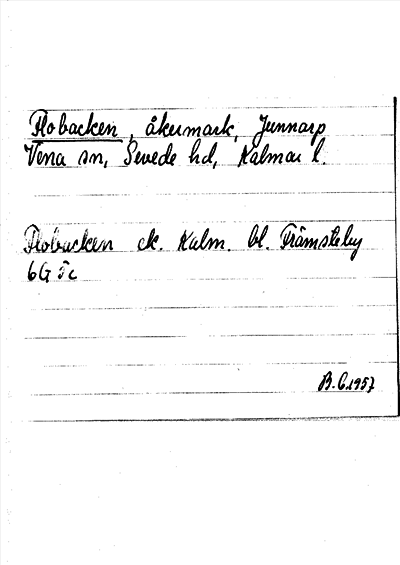 Flobacken, åkermark, Gunnarp
Vena sn, Sevede hd, Kalmar l.
Flobacken ek. Kalm. bl. Främsteby
6G 5c
B.C. 1957